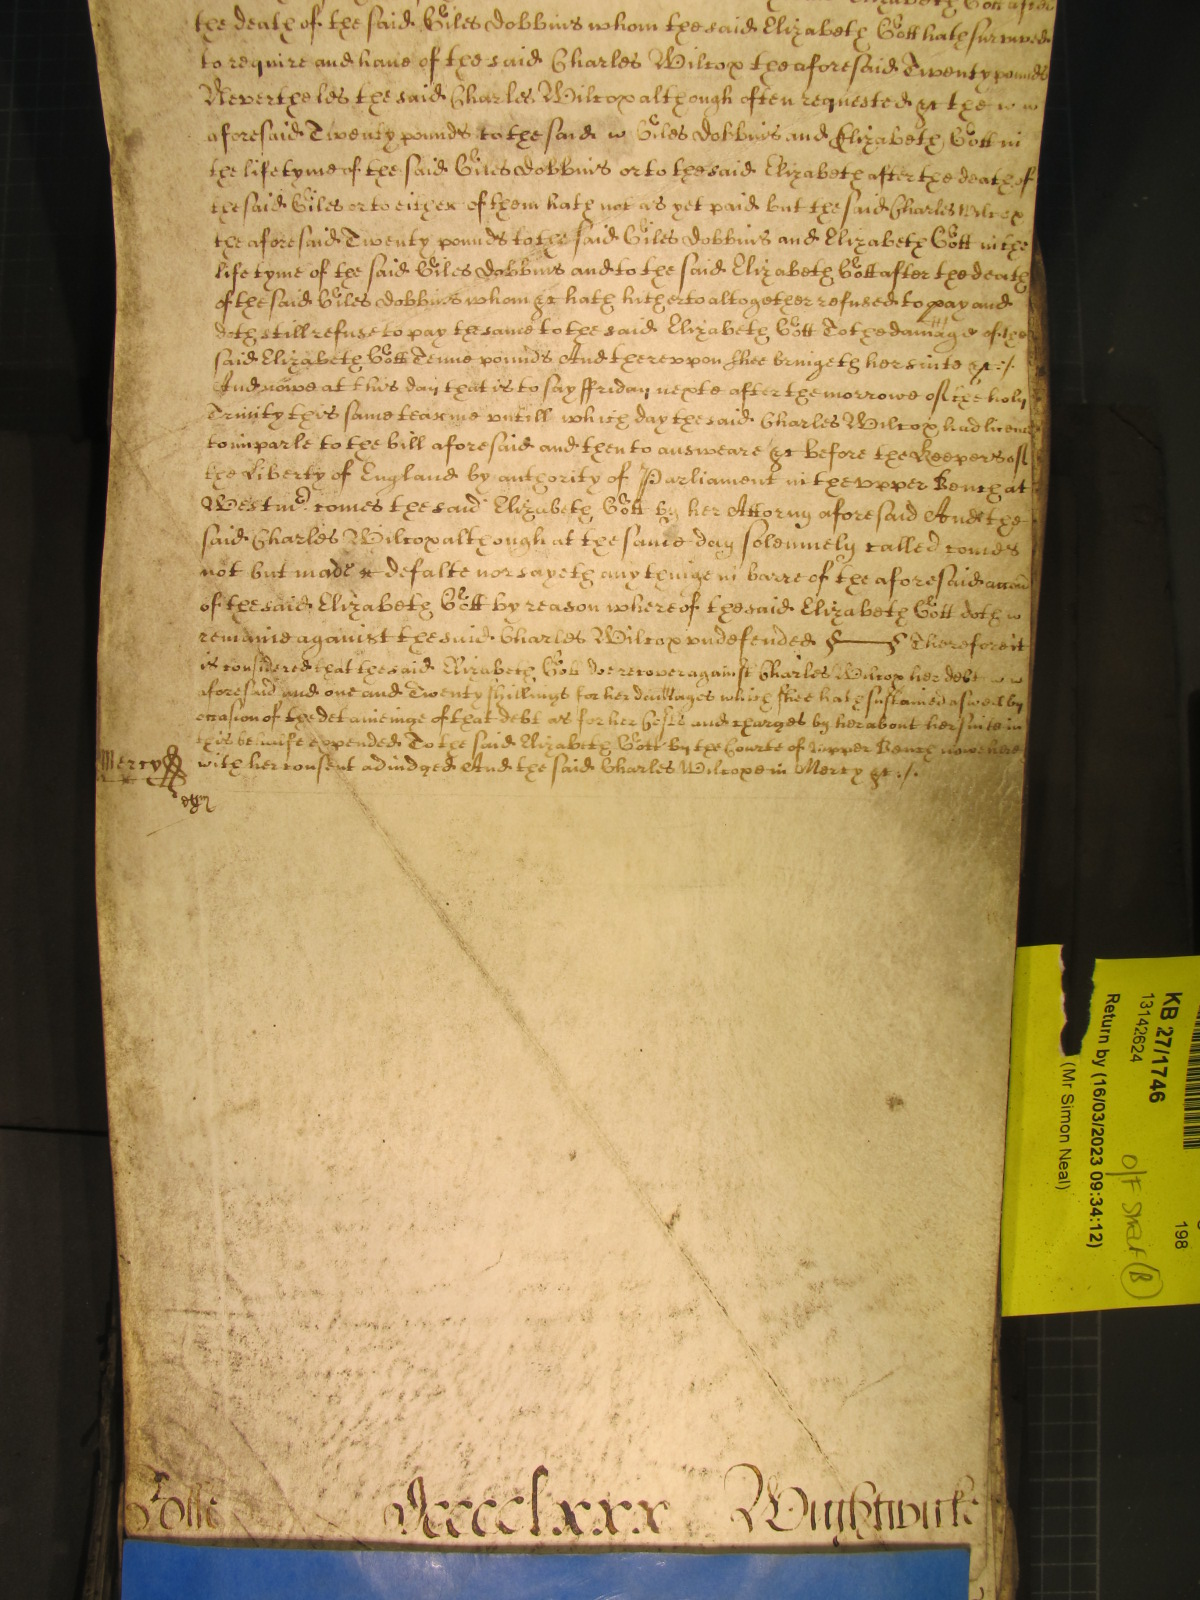 Elizabeth Gott after
the death of the said Giles Dobbins whom the said Elizabeth Gott hath survived
to require and haue of the said Charles Wilcox the aforesaid Twenty pounds
Neverthelds the said Charles Wilcox although often requested &c the
aforesaid Twenty pounds to the said Giles Dobbins and Elizabeth Gott in
the life tyme of the said Giles Dobbins or to the said Elizabeth after the death of
the said Giles or to either of them hath not as yet paid but the said Charles Wilcox
the aforesaid Twenty pounds to the said Giles Dobbins and Elizabeth Gott in the
life tyme of the said Giles Dobbins and to the said Elizabeth Gott after the death
of the said Giles Dobbins whom &c hath hitherto altogether refused to pay and
doth still refuse to pay the same to the said Elizabeth Gott To the damage of the
said Elizabeth Gott Tenne pounds And therevpon shee bringeth her suite &c ./.
And nowe at this day that is to say ffriday nexte after the morrowe of the holy
Trinity this same tearme vntill which day the said Charles Wilcox had licence
to imparle to the bill aforesaid and then to answeare &c before the Keepers of
the Liberty of England by authority of Parliament in the vpper Bench at
Westmr comes the said Elizabeth Gott by her Attorny aforesaid And the
said Charles Wilcox although at the same day solemnely called comes
not but made defalte nor sayeth any thinge in barre of the aforesaid accon
of the said Elizabeth Gott by reason whereof the said Elizabeth Gott doth
remaine against the said Charles Wilcox vndefended Therefore it
is considered that the said Elizabeth Gott doe recover against Charles Wilcox her debt
aforesaid and one and Twenty shillings for her damages which shee hath sustained aswell by
occasion of the detaineinge of that debt as for her Costs and charges by her about her suite in
this behalfe expended To the said Elizabeth Gott by the Courte of vpper Bench nowe here
Mercy with her consent adiudged And the said Charles Wilcox in Mercy &c ./.
Rolle Mcccclxxx Wightwicke
KB 27/1746
13142624
Return by (16/03/2023 09:34:12)
(Mr Simon Neal)
198
O/F Shelf B